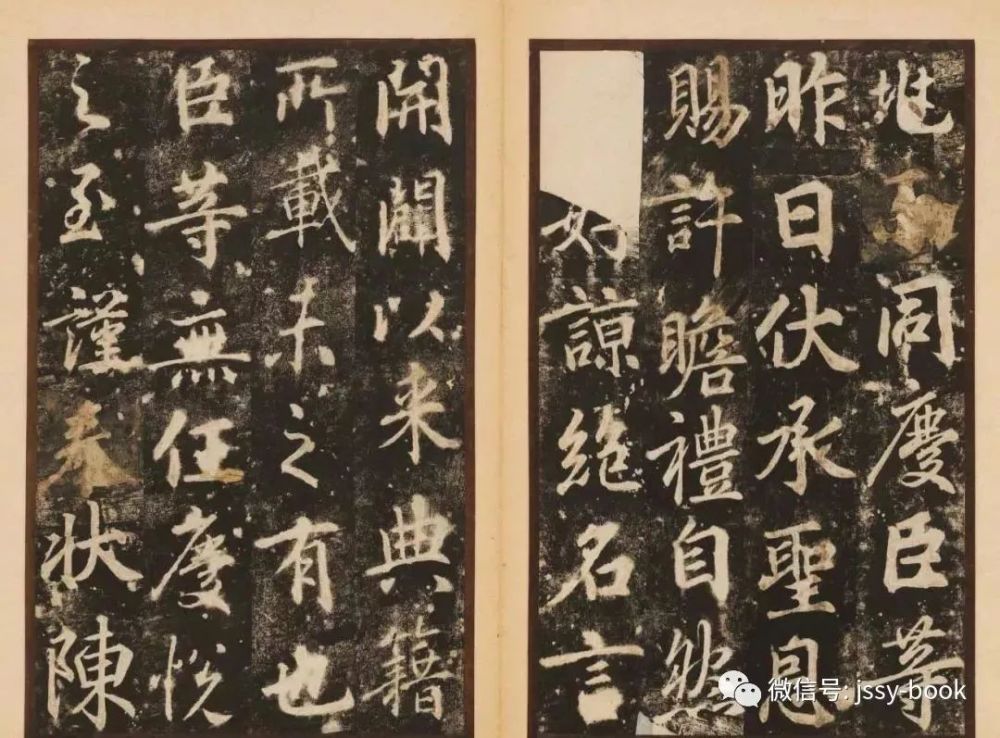 地同慶臣等
昨日伏承聖恩
賜許瞻禮自然
妙諒絕名言
開闢以来典籍
所載未之有也
臣等無任慶悅
之至謹奉狀陳
微信号: jssy-book